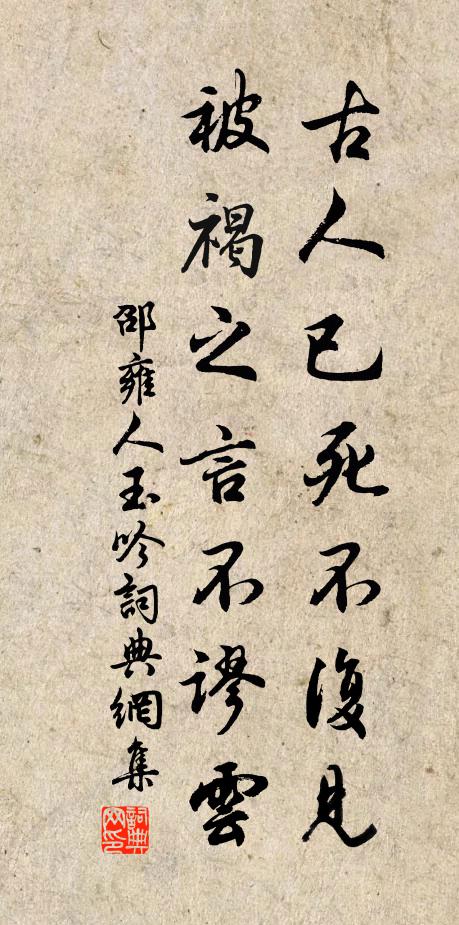 古人已死不復見
被褐之言不謬雲
邵雍人玉吟詞典網集
詞典网印